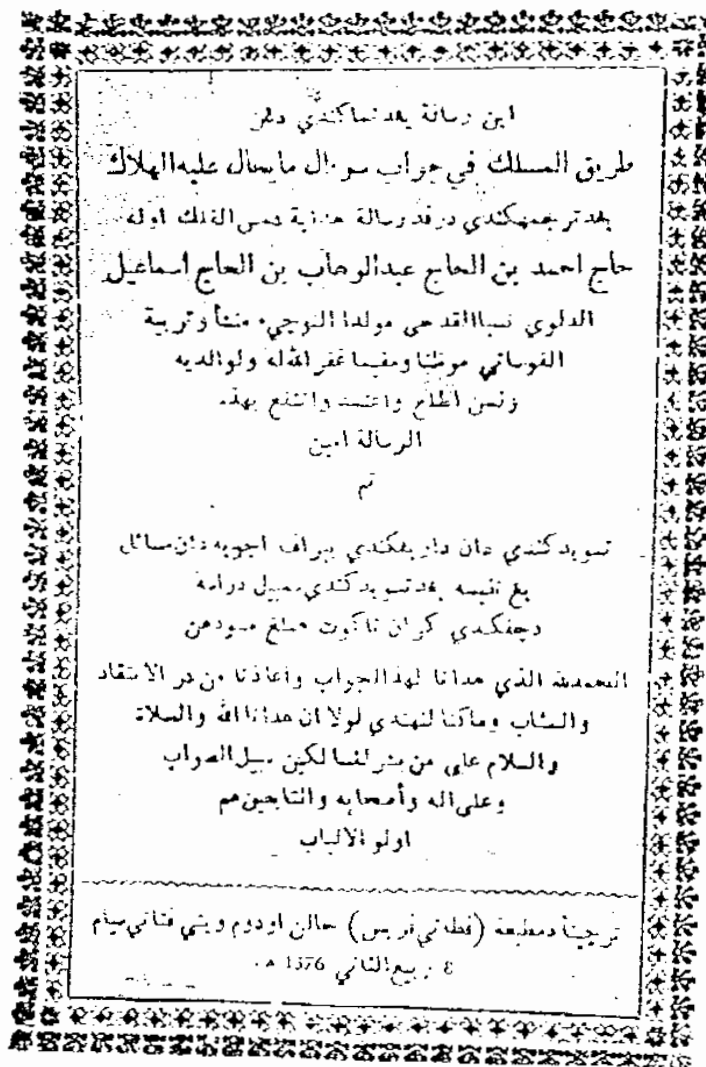 اين رسالة يغدنماكندي دڠن
طريق المسلك في جواب سوءال مايسال عليه الهلاك
يغدترجمهكندي درفد رسالة هداية شمس الفلك اوله
حاج احمد بن الحاج عبدالوهاب بن الحاج اسماعيل
نسبا مولدا منشأ وتربية
الفوساتي موطنا ومقيما غفرالله له ولوالديه
ولمن اطلع واعتمد وانتفع بهذه
الرسالة امين
تم
تسويدكندي دان بيراف اجوبه دان مسائل
يغ نفيسه يغدتسويدكندي سبيل درامة
دچفكندي كران تاكوت
الحمدلله الذي هدانا لهذا الجواب واعاذنا من در الانتقاد
والعتاب وماكنا لنهتدي لولا ان هدانا الله والصلاة
والسلام على من سبيل الصواب
وعلى اله وأصحابه والتابعين هم
اولو الالباب
ترچيتأ دمطبعة (فطاني فريس) جالن اودوم ويتي فتاني سيام
8 ربيع الثاني 1376 هـ